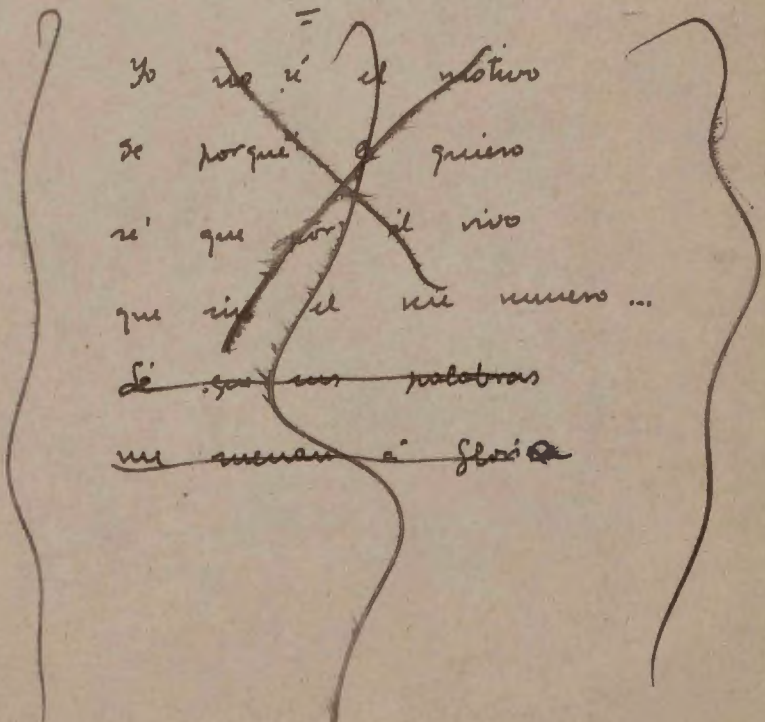 Yo no sé el motivo
se porqué quiero
sé que por él vivo
que sin el me muero ...
Sé que sus palabras
me suenan á gloria